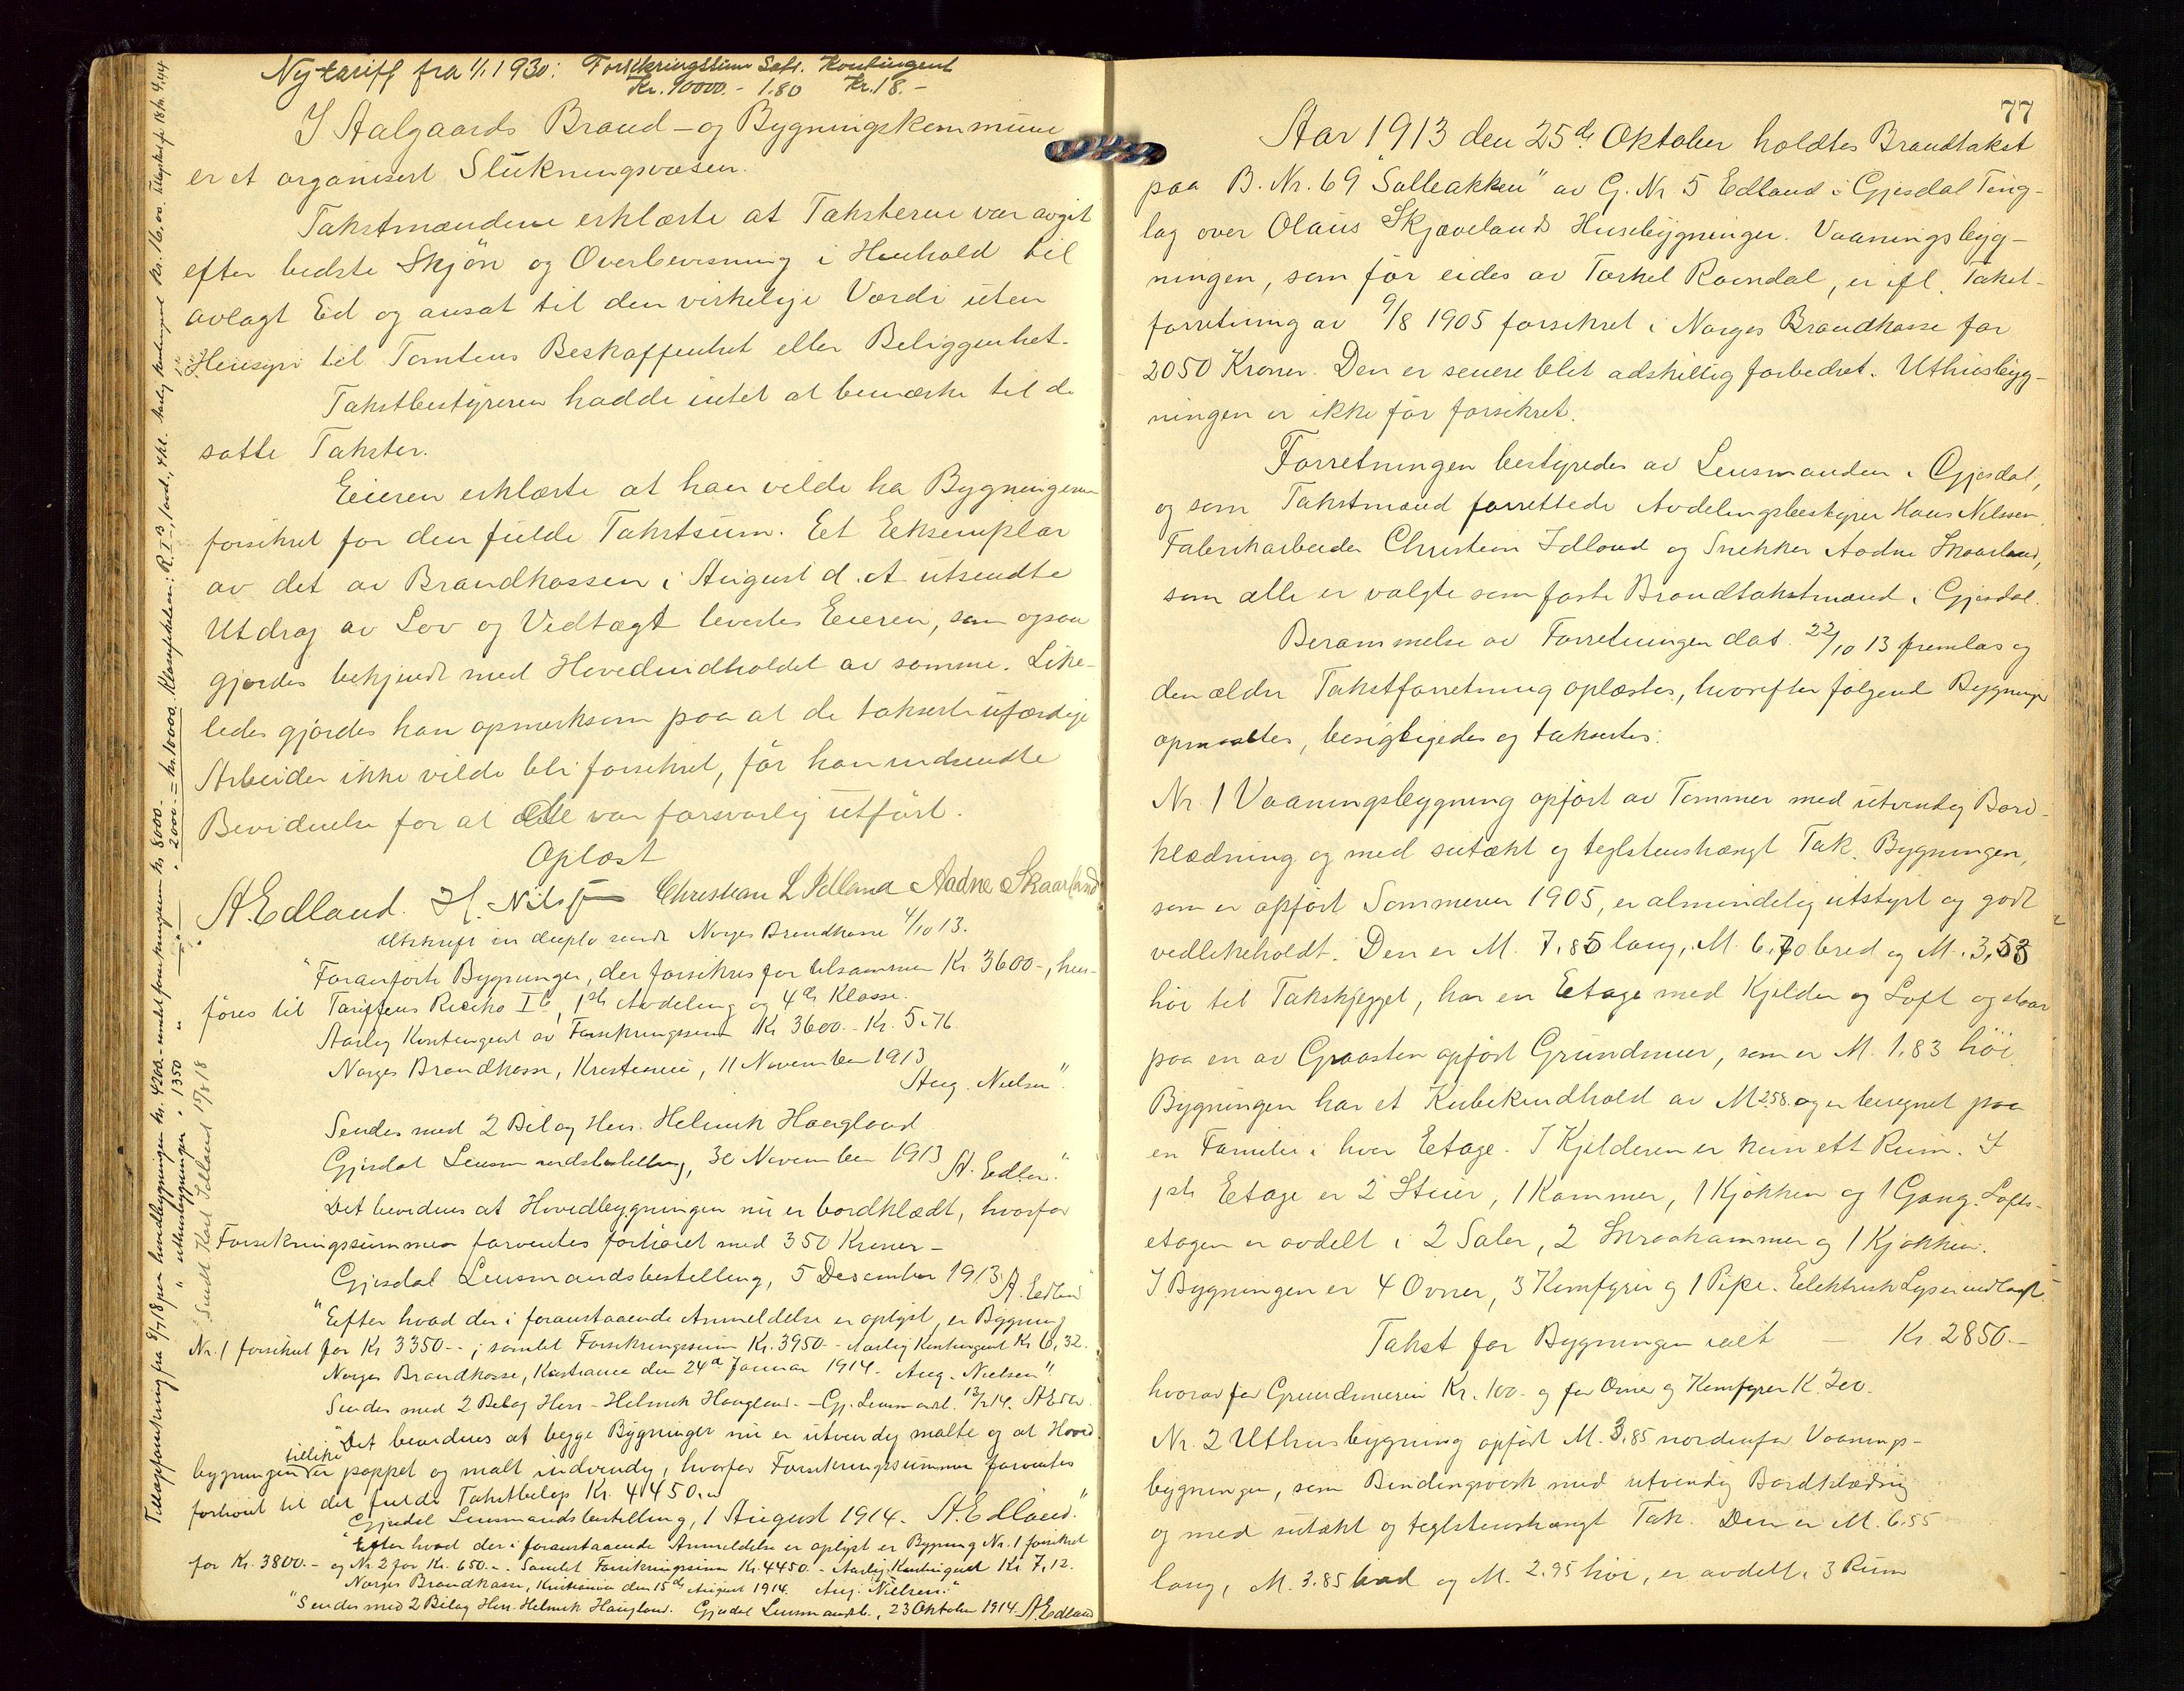 Ny tariff fra 1/1 1930: Forsikringssum Sats. Kontingent
Kr. 10000.- 1.80 Kr. 18.-
I Aalgaards Brand- og Bygningskommune
er et organisert Slukningsvæsen.
Takstmændene erklærte at Taksterne var avgit
efter bedste Skjøn og Overbevisning i Henhold til
avlagt Ed og ansat til den virkelige Værdi uten
Hensyn til Tomtens Beskaffenhet eller Beliggenhet.
Takstbestyreren hadde intet at bemærke til de
satte Takster.
Eieren erklærte at han vilde ha Bygningerne
forsikret for den fulde Takstsum. Et Eksemplar
av det av Brandkassen i August d. A. utsendte
Utdrag av Lov og Vedtægt levertes Eieren, som ogsaa
gjordes bekjendt med Hovedindholdet av samme. Like-
ledes gjordes han opmerksom paa at de takserte ufærdige
Arbeider ikke vilde bli forsikret, før han indsendte
Bevidnelse for at alle var forsvarlig utført.
Oplæst
A. Edland. H. Nilsen Christian L Idland Aadne Skaarland
Utskrift in duplo sendt Norges Brandkasse 4/10 13.
"Foranførte Bygninger, der forsikres for tilsammen Kr 3600-, hen-
føres til Tariffens Risiko I b, 1ste Avdeling og 4de Klasse.
Aarlig Kontingent av Forsikringssum Kr 3600.- Kr. 5.76.
Norges Brandkasse, Kristiania, 11 November 1913
Aug. Nielsen".
Sendes med 2 Bilag Herr Helmik Haugland
Gjesdal Lensmandsbestilling, 30 November 1913 A. Edland
Det bevidnes at Hovedbygningen nu er bordklædt, hvorfor
Forsikringssummen forventes forhøiet med 350 Kroner -
Gjesdal Lensmandsbestilling, 5 Desember 1913. A. Edland
"Efter hvad der i foranstaaende Anmeldelse er oplyst, er Bygning
Nr. 1 forsikret for Kr 3350--; samlet Forsikringssum Kr. 3950-- Aarlig Kontingent Kr 6,32.
Norges Brandkasse, Kristiania den 24de Januar 1914. Aug. Nielsen"
Sendes med 2 Bilag Herr Helmik Haugland. - Gj. Lensmandsb. 13/2 14. A Edland
Det bevidnes at begge Bygninger nu er utvendig malte og at Hoved-
bygningen tillike er pappet og malt indvendig, hvorfor Forsikringssummen forventes
forhøiet til det fulde Takstbeløp Kr. 4450.-
Gjesdal Lensmandsbestilling, 1 August 1914. A. Edland."
"Efter hvad der i foranstaaende Anmeldelse er oplyst er Bygning Nr. 1 forsikret
for Kr. 3800.- og Nr. 2 for Kr. 650.-. Samlet Forsikringssum Kr. 4450.- Aarlig Kontingent Kr 7,12.
Norges Brandkasse, Kristiania den 15de August 1914. Aug. Nielsen."
"Sendes med 2 Bilag Herr Helmik Haugland. Gjesdal Lensmandsb., 23 Oktober 1914. A Edland
Tillægsforsikring fra 9/7 18 paa hovedbygningen kr. 4200.- samlet forsikringssum kr 8000.-
" " uthusbygningen " 1350 " " " 2000.- = kr. 10000. Klassifikation: R. I B, 1 avd., 4 kl. Aarlig kontingent kr. 16,00.
Sendt Karl Idland 15/8 18
77
Aar 1913 den 25de Oktober holdtes Brandtakst
paa B. Nr. 69 "Solbakken" av G. Nr 5 Edland i Gjesdal Ting-
lag over Olaus Skjævelands Husebygninger. Vaaningsbyg-
ningen, som før eides av Torkel Ravndal, er ifl. Takst-
forretning av 9/8 1905 forsikret i Norges Brandkasse for
2050 Kroner. Den er senere blit adskillig forbedret. Uthusbyg-
ningen er ikke før forsikret.
Forretningen bestyredes av Lensmanden i Gjesdal,
og som Takstmænd forrettede Avdelingsbestyrer Hans Nilssen,
Fabrikarbeider Christian Idland og Snekker Aadne Skaarland,
som alle er valgte som faste Brandtakstmænd i Gjesdal.
Berammelse av Forretningen dat. 22/10 13 fremlas og
den ældre Takstforretning oplæstes, hvorefter følgende Bygninger
opmaaltes, besigtigedes og takseertes:
Nr 1 Vaaningsbygning opført av Tømmer med utvendig Bord-
klædning og med sutækt og teglstenshængt Tak. Bygningen,
som er opført Sommeren 1905, er almindelig utstyrt og godt
vedlikeholdt. Den er M. 7.85 lang, M. 6.70 bred og M. 3,53
høi til Takskjegget, har en Etage med Kjelder og Loft og staar
paa en av Graasten opført Grundmur, som er M. 1.83 høi.
Bygningen har et Kubikindhold av M 258. og er beregnet paa
en Familie i hver Etage. I Kjelderen er kun ett Rum. I
1ste Etage er 2 Stuer, 1 Kammer, 1 Kjøkken og 1 Gang. Lofts-
etagen er avdelt i 2 Saler, 2 Skraakammer og 1 Kjøkken.
I Bygningen er 4 Ovner, 3 Komfyrer og 1 Pipe. Elektrisk Lys er indlagt.
Takst for Bygningen ialt - Kr. 2850.-
hvorav for Grundmuren Kr. 100.- og for Ovner og Komfyrer K. 200.
Nr. 2 Uthusbygning opført M. 3.85 nordenfor Vaanings-
bygningen, som Bindingsverk med utvendig Bordklædning
og med sutækt og teglstenshængt Tak. Den er M. 6.55
lang, M. 3.85 bred og M. 2.95 høi, er avdelt i 3 Rum